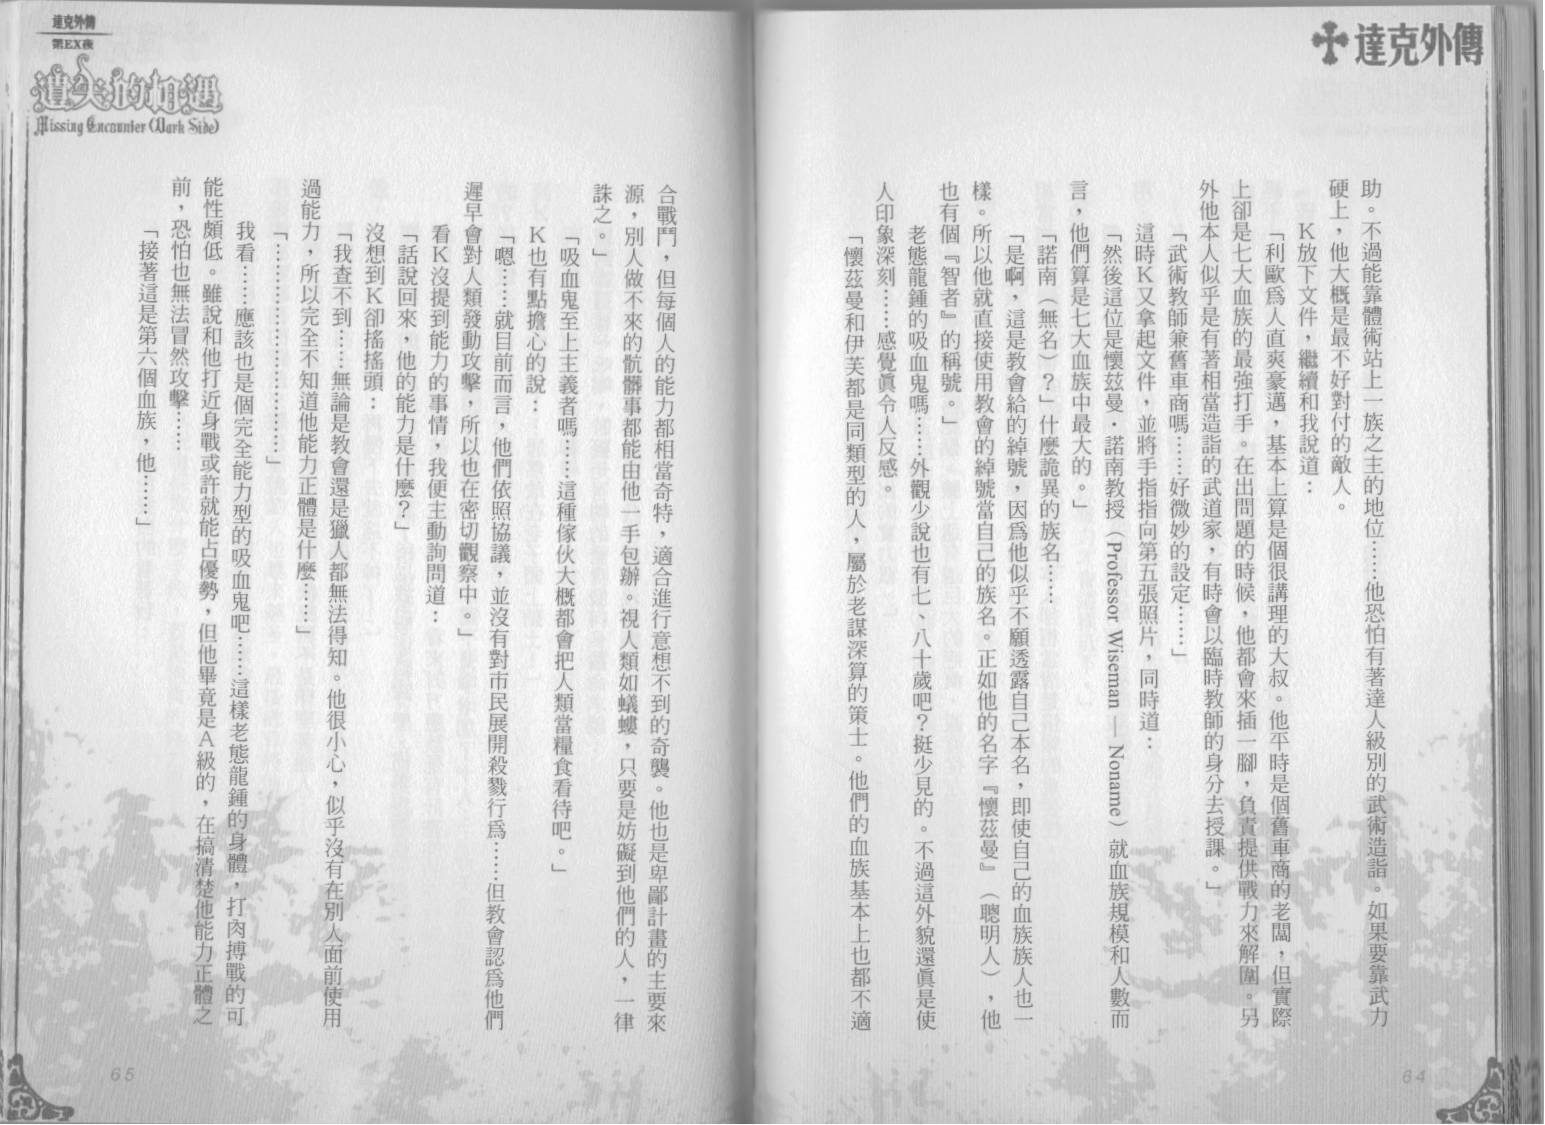 達克外傳
助。不過能靠體術站上一族之主的地位……他恐怕有著達人級別的武術造詣。如果要靠武力
硬上，他大概是最不好對付的敵人。
K放下文件，繼續和我說道：
「利歐為人直爽豪邁，基本上算是個很講理的大叔。他平時是個舊車商的老闆，但實際
上卻是七大血族的最強打手。在出問題的時候，他都會來插一腳，負責提供戰力來解圍。另
外他本人似乎是有著相當造詣的武道家，有時會以臨時教師的身分去授課。」
「武術教師兼舊車商嗎……好微妙的設定……」
這時K又拿起文件，並將手指指向第五張照片，同時道：
「然後這位是懷茲曼·諾南教授（Professor Wiseman — Noname）就血族規模和人數而
言，他們算是七大血族中最大的。」
「諾南（無名）？」什麼詭異的族名……
「是啊，這是教會給的綽號，因為他似乎不願透露自己本名，即使自己的血族族人也一
樣。所以他就直接使用教會的綽號當自己的族名。正如他的名字『懷茲曼』（聰明人），他
也有個『智者』的稱號。」
老態龍鍾的吸血鬼嗎……外觀少說也有七、八十歲吧？挺少見的。不過這外貌還真是使
人印象深刻……感覺真令人反感。
「懷茲曼和伊芙都是同類型的人，屬於老謀深算的策士。他們的血族基本上也都不適
64
達克外傳
第EX夜
遺失的相遇
Missing Encounter (Dark Side)
合戰鬥，但每個人的能力都相當奇特，適合進行意想不到的奇襲。他也是卑鄙計畫的主要來
源，別人做不來的骯髒事都能由他一手包辦。視人類如蟻螻，只要是妨礙到他們的人，一律
誅之。」
「吸血鬼至上主義者嗎……這種傢伙大概都會把人類當糧食看待吧。」
K也有點擔心的說：
「嗯……就目前而言，他們依照協議，並沒有對市民展開殺戮行為……但教會認為他們
遲早會對人類發動攻擊，所以也在密切觀察中。」
看K沒提到能力的事情，我便主動詢問道：
「話說回來，他的能力是什麼？」
沒想到K卻搖搖頭：
「我查不到……無論是教會還是獵人都無法得知。他很小心，似乎沒有在別人面前使用
過能力，所以完全不知道他能力正體是什麼……」
「…………………………」
我看……應該也是個完全能力型的吸血鬼吧……這樣老態龍鍾的身體，打肉搏戰的可
能性頗低。雖說和他打近身戰或許就能占優勢，但他畢竟是A級的，在搞清楚他能力正體之
前，恐怕也無法冒然攻擊……
「接著這是第六個血族，他……」
65